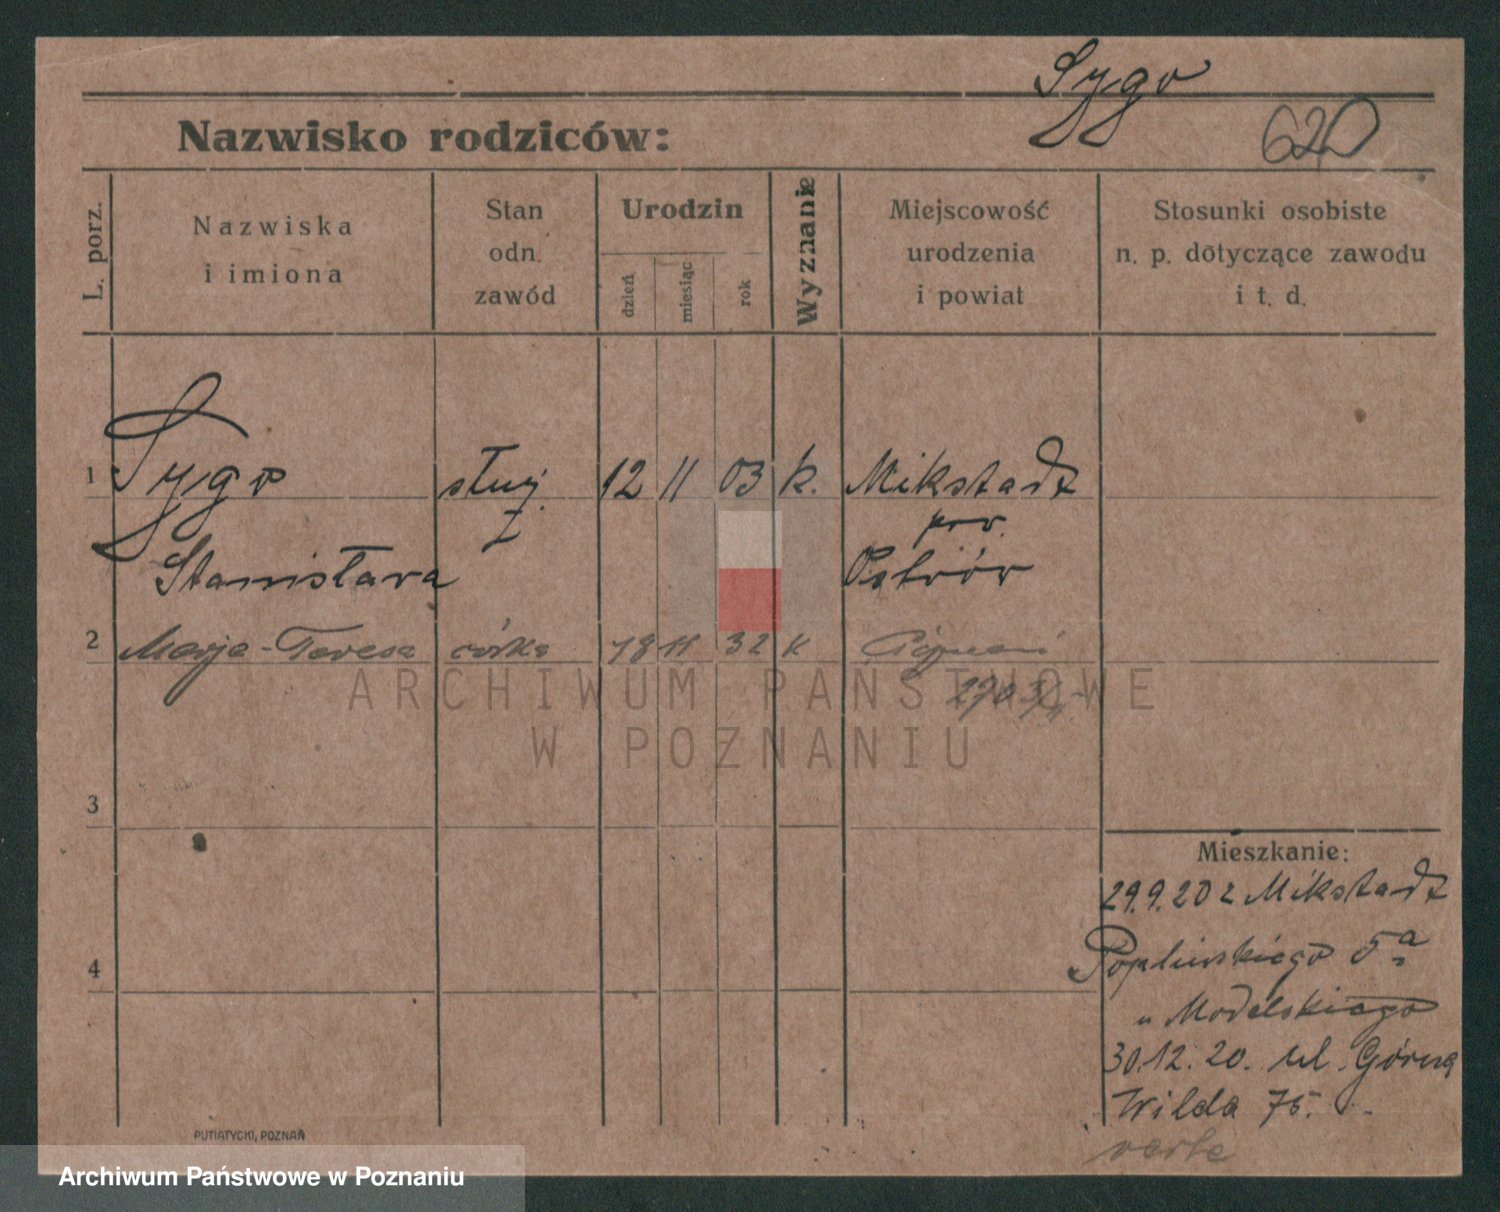 Sygo
620
Nazwisko rodziców:
L. porz.
Nazwiska
i imiona
Stan
odn.
zawód
Urodzin
dzień
miesiąc
rok
Wyznanie
Miejscowość
urodzenia
i powiat
Stosunki osobiste
n. p. dotyczące zawodu
i t. d.
1 Sygo służ. 12 11 03 k. Mikstadt
pow.
Stanisława Ostrów
2 Marja-Teresa córka 18 11 32 k Poznań
ARCHIWUM PAŃSTWOWE
W POZNANIU
3
Mieszkanie:
29.9.20 z Mikstadt
4
Poplińskiego 5a
u Modelskiego
30.12.20. ul. Górna
Wilda 75.
verte
PUTIATYCKI, POZNAŃ
Archiwum Państwowe w Poznaniu